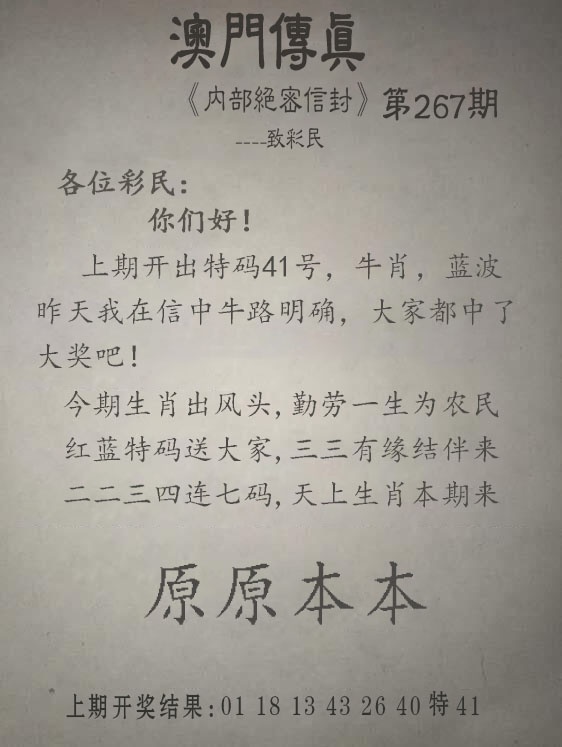 澳門傳眞
《内部絕密信封》第267期
----致彩民
各位彩民:
你们好!
上期开出特码41号,牛肖,蓝波
昨天我在信中牛路明确,大家都中了
大奖吧!
今期生肖出风头,勤劳一生为农民
红蓝特码送大家,三三有缘结伴来
二二三四连七码,天上生肖本期来
原原本本
上期开奖结果:01 18 13 43 26 40 特 41